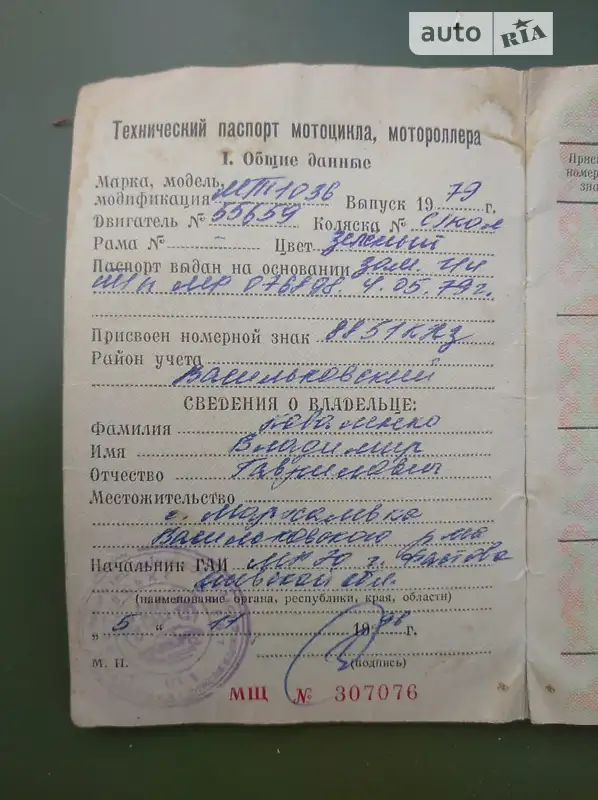 auto RIA
Технический паспорт мотоцикла, мотороллера
I. Общие данные
Марка, модель,
модификация МТ1036 Выпуск 1979 г.
Двигатель № 55659 Коляска № с/кол
Рама № - Цвет зеленый
Паспорт выдан на основании зам.
МЮ 076898. 4.05.79г.
Присвоен номерной знак 8851кхз
Район учета
Васильковский
СВЕДЕНИЯ О ВЛАДЕЛЬЦЕ:
Фамилия Коваленко
Имя Владимир
Отчество Гаврилович
Местожительство
с. Мархалевка
Васильковского р-на
Начальник ГАИ г. Фастова
Киевской обл.
(наименование органа, республики, края, области)
„ 5 “ 11 1996 г.
М. П. (подпись)
МЩ № 307076
Присв
номер
зна